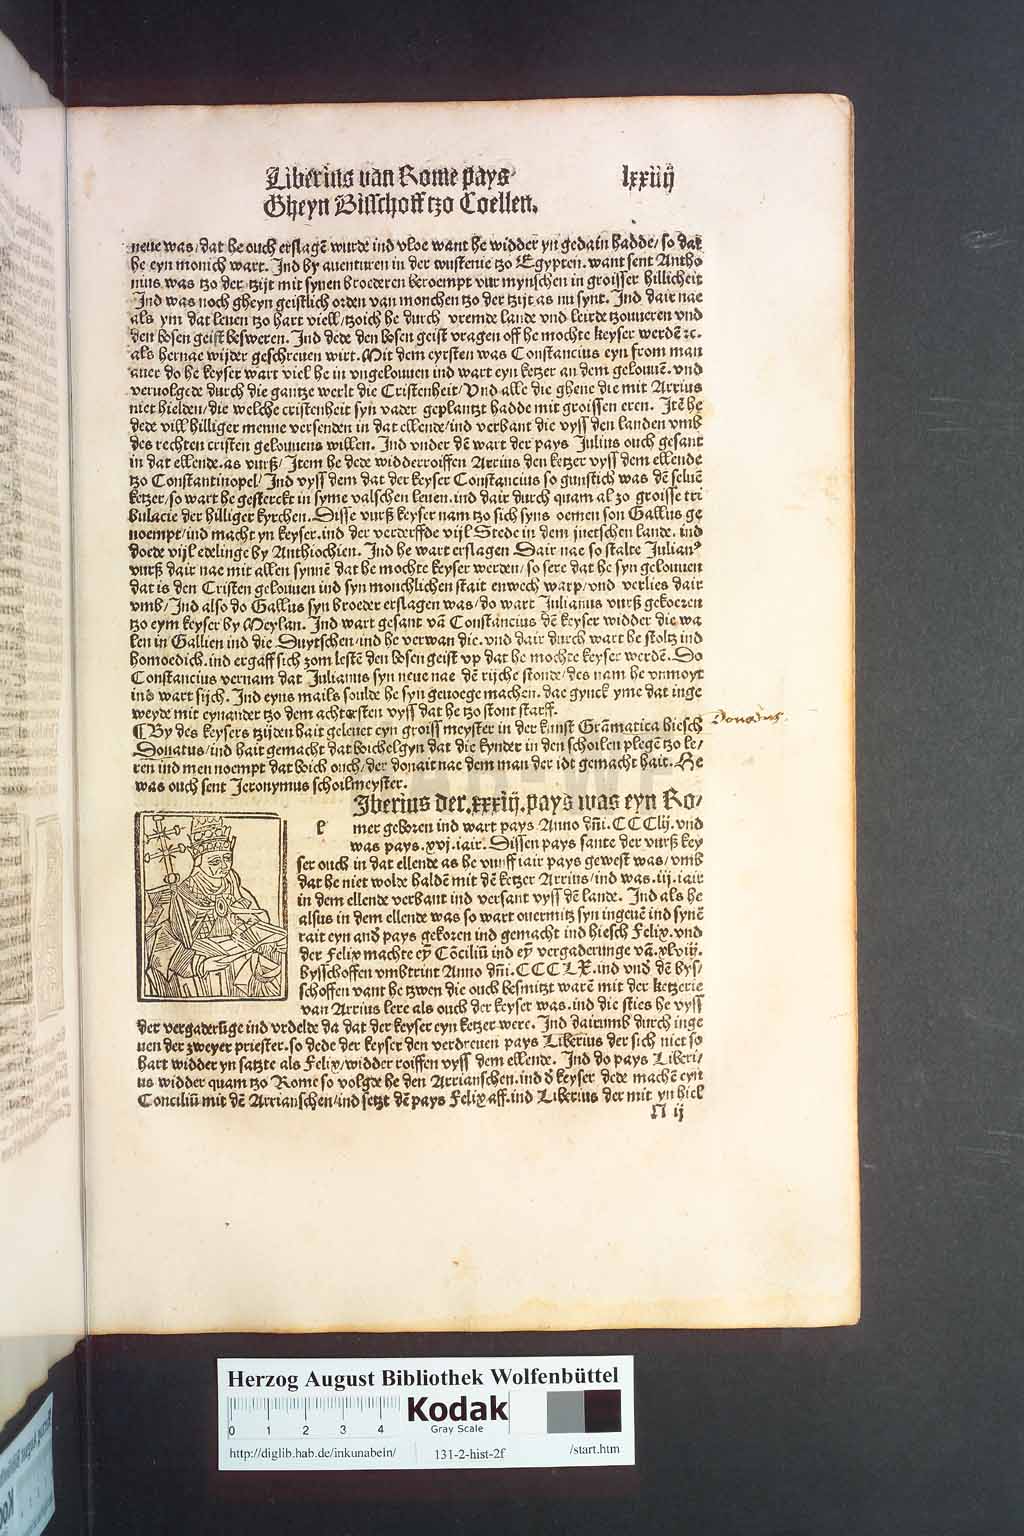 Liberius van Rome pays
lxxiiij
Gheyn Bisschoff tzo Coellen.
neue was/dat he ouch erslagē wurde ind vloe want he widder yn gedain hadde/so dat
he eyn monich wart. Ind by auenturen in der wustenie tzo Egypten. want sent Antho
nius was tzo der tzijt mit synen broederen beroempt vur mynschen in groisser hillicheit
Ind was noch gheyn geistlich orden van monchen tzo der tzijt as nu synt. Ind dair nae
als ym dat leuen tzo hart viell/tzoich he durch vremde lande vnd leirde tzouueren vnd
den bosen geist besweren. Ind dede den bosen geist vragen off he mochte keyser werdē ꝛc.
als hernae wijder geschreuen wirt. Mit dem eyrsten was Constancius eyn from man
auer do he keyser wart viel he in vngelouuen ind wart eyn ketzer an dem gelouuē. vnd
veruolgede durch die gantze werlt die Cristenheit/Vnd alle die ghene die mit Arrius
niet hielden/die welche cristenheit syn vader geplantzt hadde mit groissen eren. Itē he
dede vill hilliger menne versenden in dat ellende/ind verbant die vyss den landen vmb
des rechten cristen gelouuens willen. Ind vnder dē wart der pays Julius ouch gesant
in dat ellende. as vurß/Item he dede widderroiffen Arrius den ketzer vyss dem ellende
tzo Constantinopel/Ind vyss dem dat der keyser Constancius so gunstich was dē seluē
ketzer/so wart he gesterckt in syme valschen leuen. ind dair durch quam al zo groisse tri
bulacie der hilliger kyrchen. Disse vurß keyser nam tzo sich syns oemen son Gallus ge
noempt/ind macht yn keyser. ind der verderffde vijl Stede in dem juetschen lande. ind
doede vijl edelinge by Anthiochien. Ind he wart erslagen Dair nae so stalte Julianꝰ
vurß dair nae mit allen synnē dat he mochte keyser werden/so sere dat he syn gelouuen
dat is den Cristen gelouuen ind syn monchlichen stait enwech warp/vnd verlies dair
vmb/Ind also do Gallus syn broeder erslagen was/do wart Julianus vurß gekoeren
tzo eym keyser by Meylan. Ind wart gesant vā Constancius dē keyser widder die wa
len in Gallien ind die Duytschen/ind he verwan die. vnd dair durch wart he stoltz ind
homoedich. ind ergaff sich zom lestē den bosen geist vp dat he mochte keyser werdē. Do
Constancius vernam dat Julianus syn neue nae dē rijche stonde/des nam he vnmoyt
ind wart sijch. Ind eyns mails soulde he syn genoege machen. dae gynck yme dat inge
weyde mit eynander tzo dem achtersten vyss dat he tzo stont starff.
¶ By des keysers tzijden hait geleuet eyn groiss meyster in der kunst Grāmatica hiesch
Donatus.
Donatus/ind hait gemacht dat boichelgyn dat die kynder in den schoilen plegē tzo le/
ren ind men noempt dat boich ouch/der donait nae dem man der idt gemacht hait. He
was ouch sent Jeronymus schoilmeyster.
Iberius der .xxxiij. pays was eyn Ro/
l mer geboren ind wart pays Anno dñi. CCClij. vnd
was pays .xvj. iair. Dissen pays sante der vurß key
ser ouch in dat ellende as he vunff iair pays gewest was/vmb
dat he niet wolde haldē mit dē ketzer Arrius/ind was .iij. iair
in dem ellende verbant ind versant vyss dē lande. Ind als he
alsus in dem ellende was so wart ouermitz syn ingeuē ind synē
rait eyn and pays gekoren ind gemacht ind hiesch Felix. vnd
der Felix machte eȳ Cōciliū ind eȳ vergaderunge vā .xlviij.
bysschoffen vmbtrint Anno dñi. CCCLX. ind vnd dē bys/
schoffen vant he tzwen die ouch besmitzt warē mit der ketzerie
van Arrius lere als ouch der keyser was. ind die sties he vyss
der vergaderūge ind vrdelde da dat der keyser eyn ketzer were. Ind dairumb durch inge
uen der zweyer priester. so dede der keyser den verdreuen pays Liberius der sich niet so
hart widder yn satzte als Felix/widder roiffen vyss dem ellende. Ind do pays Liberi/
us widder quam tzo Rome so volgde he den Arrianschen. ind d keyser dede machē eyn
Conciliū mit dē Arrianschen/ind setzt dē pays Felix aff. ind Liberius der mit yn hiel
N ij
Herzog August Bibliothek Wolfenbüttel
0 1 2 3 4
Kodak
Gray Scale
http://diglib.hab.de/inkunabeln/ 131-2-hist-2f /start.htm